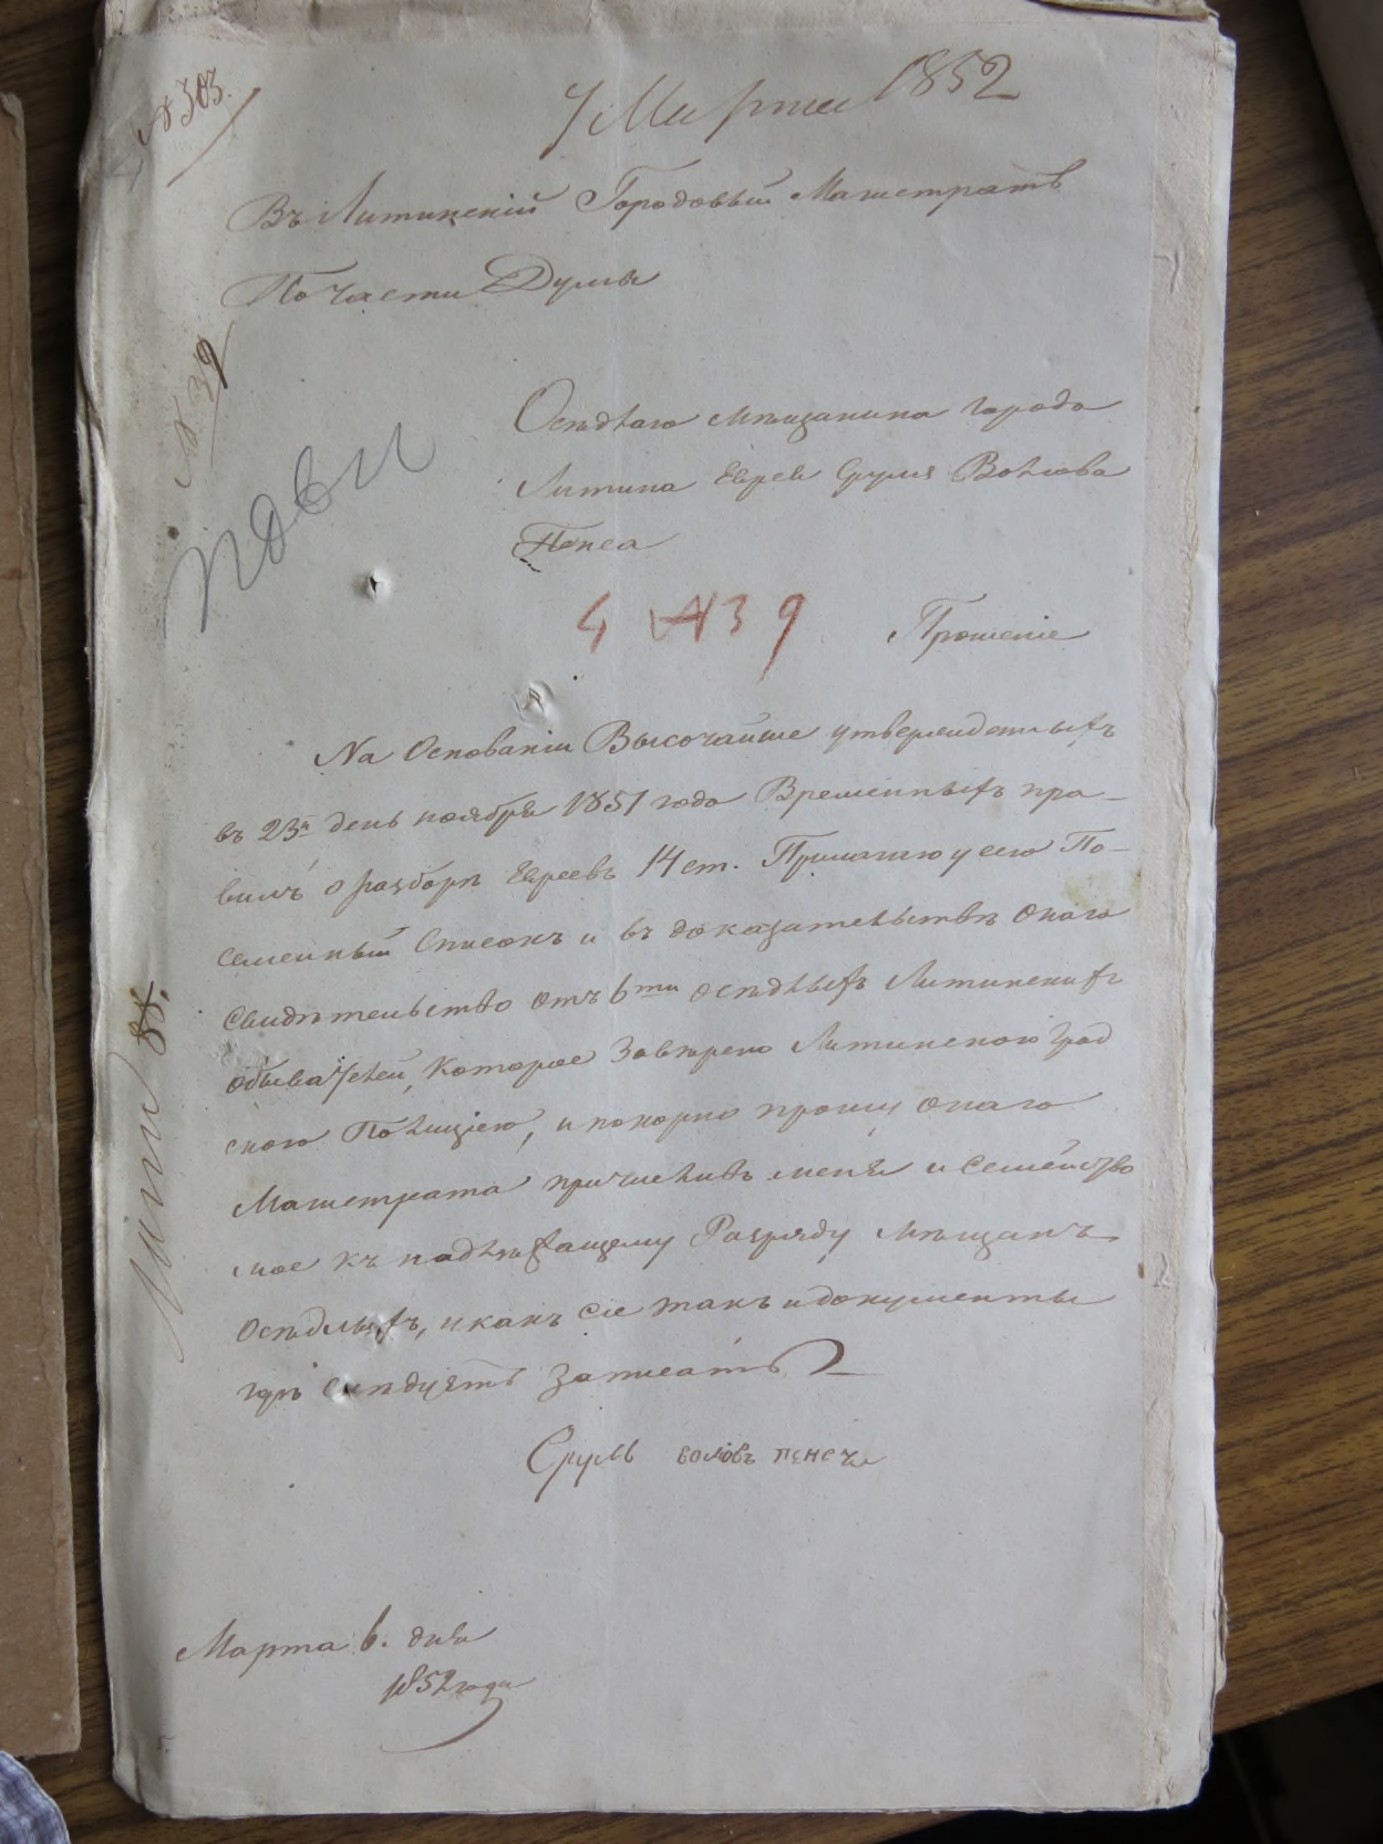 № 303.
7 Марта 1852
Въ Литинскій Городовый Магистратъ
По части Думы
№ 39
Осѣдлаго мѣщанина города
Литина Еврея Сруля Волкова
4 № 39
Прошеніе
На Основаніи Высочайше утвержденныхъ
въ 23й день ноября 1851 года Временныхъ пра–
вилъ о разборѣ Евреевъ 14 ст. Прилагаю у сего По–
семейный Списокъ и въ доказательствѣ Онаго
Свидѣтельство отъ 6ти осѣдлыхъ Литинскихъ
обывателей, Которое Завѣрено Литинскою Град
ского Полиціею, и покорно прошу Онаго
Магистрата причислить меня и Семейство
мое къ надлежащему Разряду мѣщанъ
Осѣдлыхъ, и какъ сіе такъ и документы
гдѣ Слѣдуетъ Записать
Сруль воловъ
Марта 6. дня
1852 года